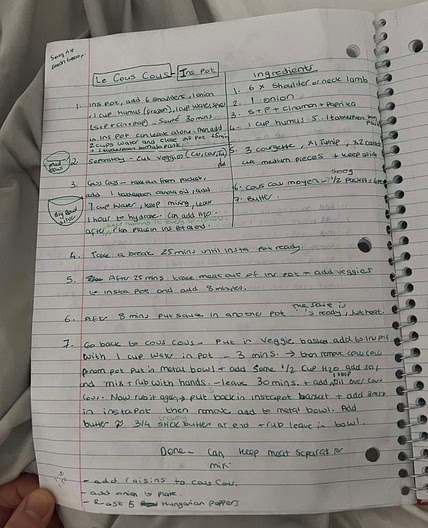 Le Cous Cous - Ins. Pot
Ingredients
1. Ins pot, add 6 shoulders, 1 onion
1 cup humus (frozen), 1 cup water, 
 - Saute 30 mins
in ins pot can leave alone - then add
2 cups water and close ins pot 25 min
1. 6 x shoulder or neck lamb
2. 1 onion
3. S + P + Cinamon + Paprika
4. 1 cup humus 5. 1 tablespoon tom
5. 3 courgette, x1 Turnip, x2 carrot
cut medium pieces + keep aside
6. Cous Cous moyen - 1/2 packet
500g
7. Butter
2. Separately - Cut veggies
3. Cous Cous - take out from packet,
add 1 tablespoon canola oil, add
1 cup water, keep mixing, leave
1 hour to hydrate. Can add H2O
after
Big Bowl
4. Take a break 25 mins until insta pot ready
5. After 25 mins. take meat out of ins pot + add veggies
to insta pot and add 8 minutes.
6. After 8 mins put sauce in another pot. The sauce is
ready, just heat.
7. Go back to cous cous - Put in veggie basket add to ins pot
with 1 cup water in pot - 3 mins. → then remove cous cous
from pot put in metal bowl + add some 1/2 cup H2O add salt
and mix + rub with hands. - leave 30 mins. + add oil over cous
cous. Now rub it again, put back in instapot basket + add 3 mins
in instapot then remove add to metal bowl. Add
butter 3/4 stick butter at end + rub leave in bowl.
Done - Can keep meat separate or
mix.
- add raisins to cous cous.
- add onion to plate.
- Roast 5 Hungarian peppers